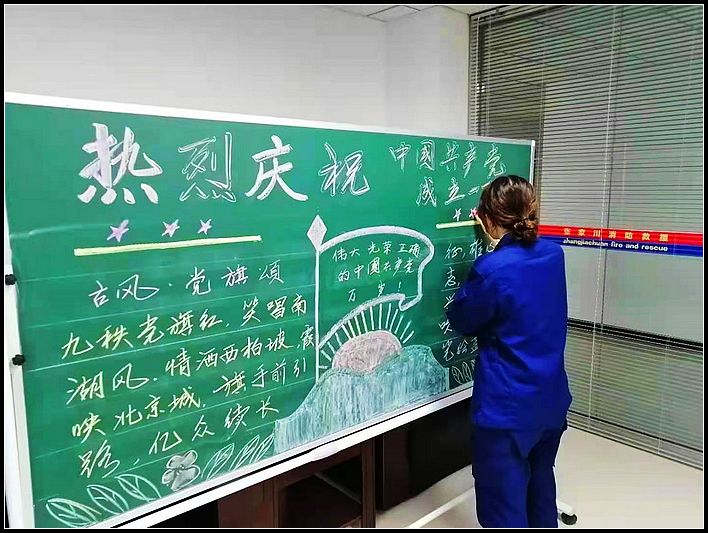 热烈庆祝
中國共产党
成立一
古风·党旗頌
九秩党旗红，笑唱南
湖风．情洒西柏坡，霞
映北京城．旗手前引
路，亿众续长
伟大光荣正确
的中國共产党
万岁！
征
志
张家川消防救援
zhangjiachuan fire and rescue